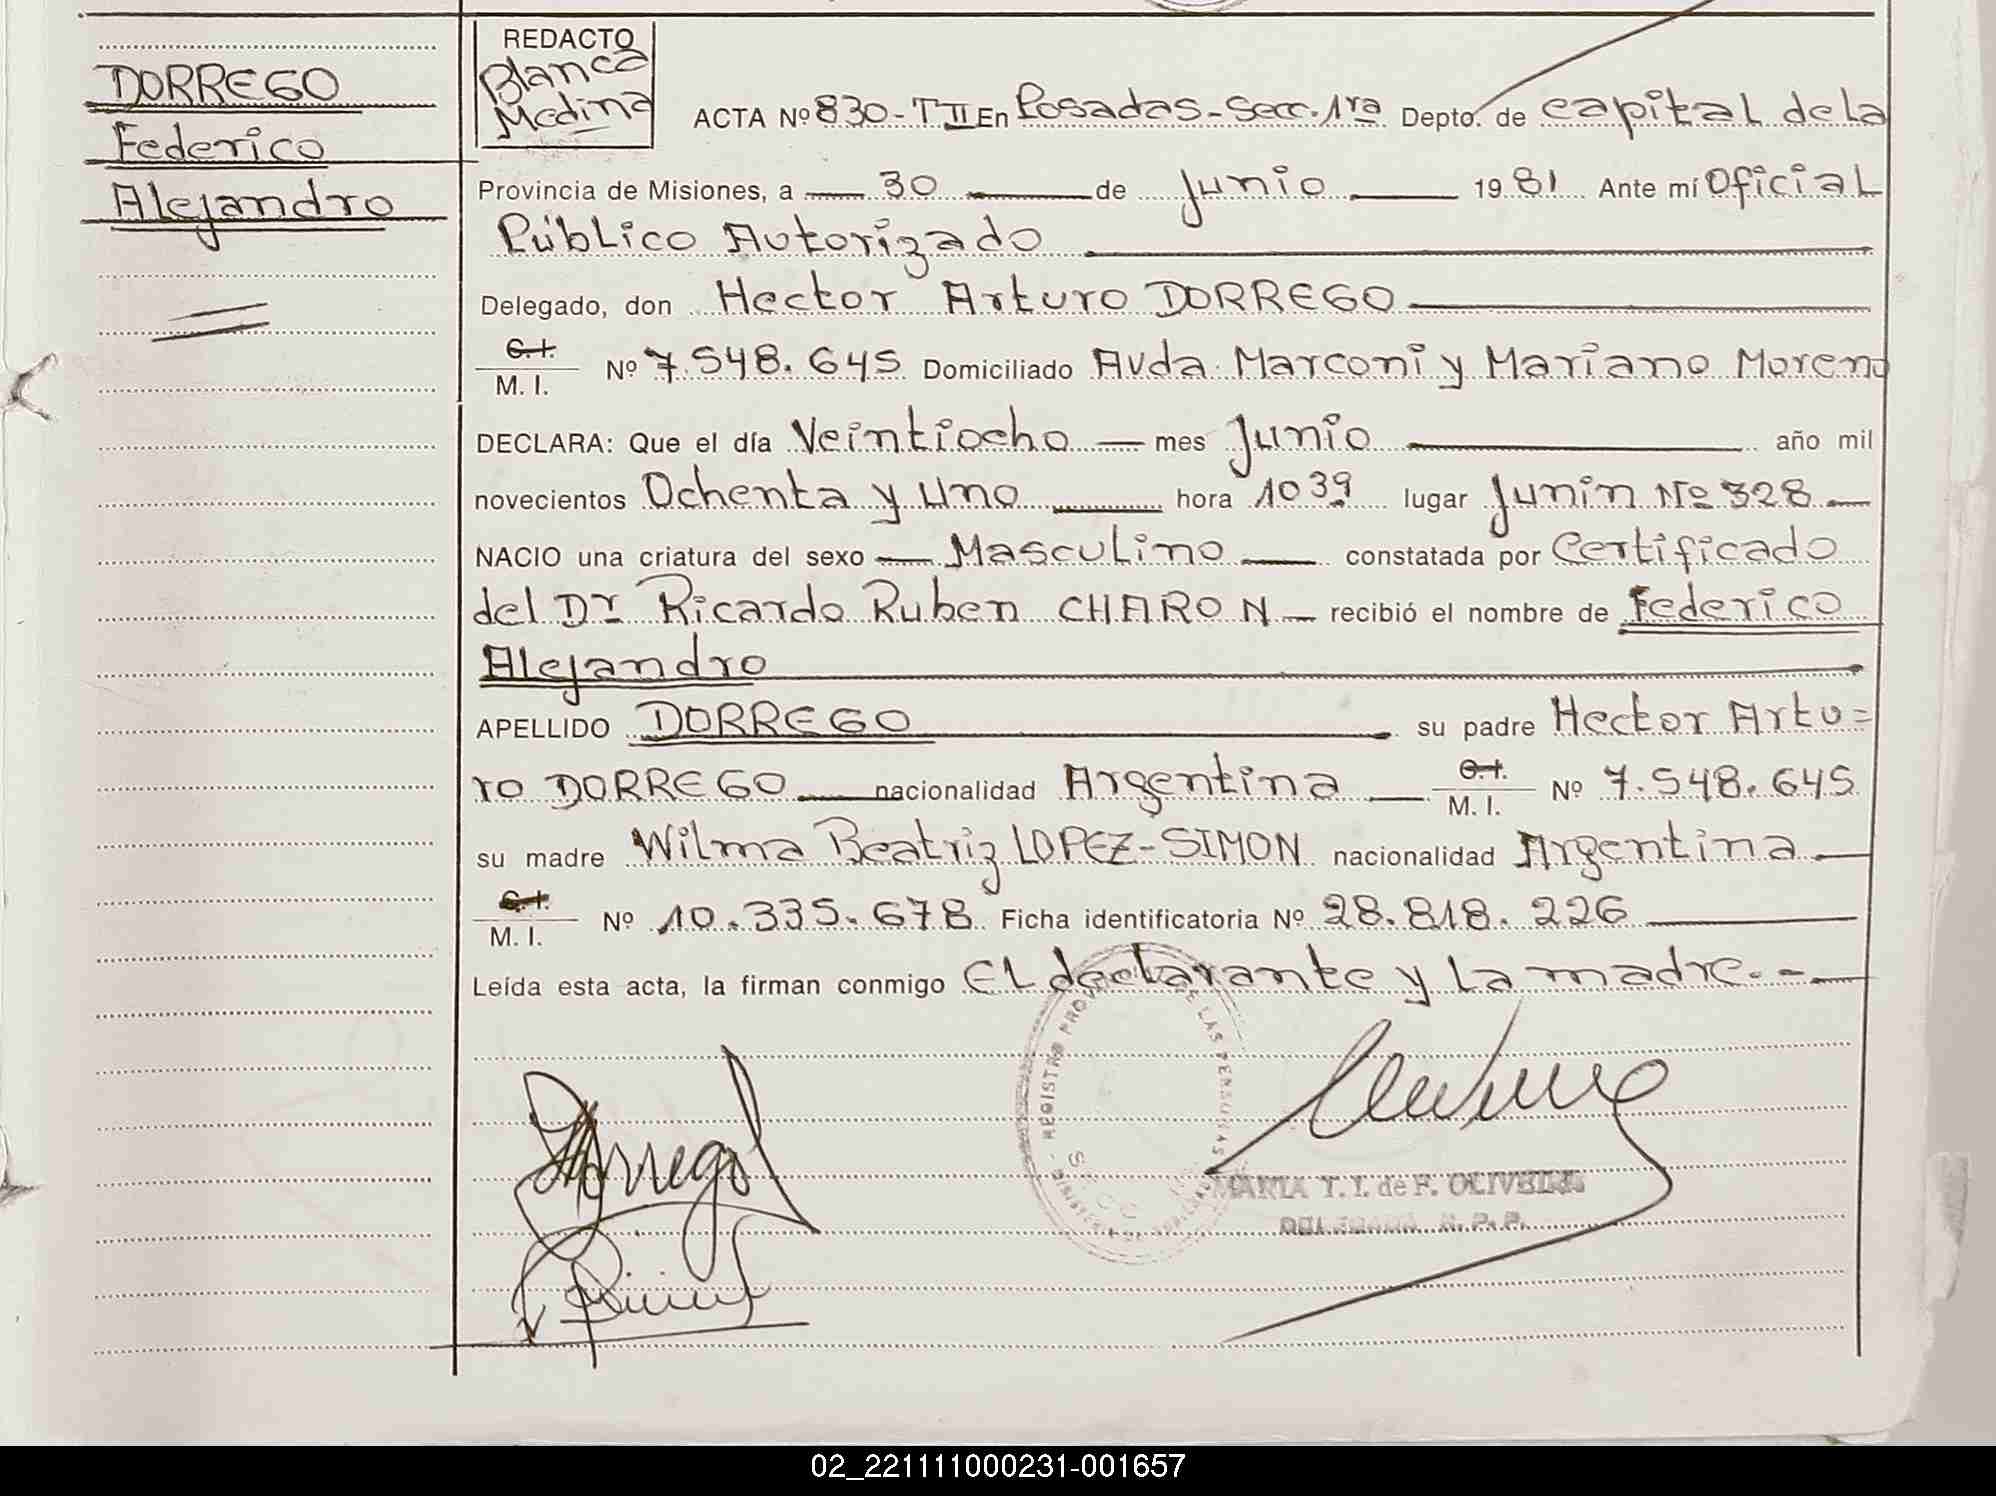 DORREGO
Federico
Alejandro
REDACTO
Blanca
Medina
ACTA Nº 830-TII En Posadas-Secc. 1ra Depto. de capital de la
Provincia de Misiones, a 30 de Junio 1981 Ante mí Oficial
Público Autorizado
Delegado, don Hector Arturo DORREGO
C.I.
M. I. Nº 7.548.645 Domiciliado Avda. Marconi y Mariano Moreno
DECLARA: Que el día Veintiocho mes Junio año mil
novecientos Ochenta y uno hora 10 39 lugar Junin Nº 328
NACIO una criatura del sexo Masculino constatada por Certificado
del Dr Ricardo Ruben CHARON recibió el nombre de Federico
Alejandro
APELLIDO DORREGO su padre Hector Artu=
ro DORREGO nacionalidad Argentina C.I. M. I. Nº 7.548.645
su madre Wilma Beatriz LOPEZ-SIMON nacionalidad Argentina
C.I.
M. I. Nº 10.335.678 Ficha identificatoria Nº 28.818.226
Leída esta acta, la firman conmigo El declarante y la madre.-
REGISTRO DE LAS PERSONAS
Dorrego
MARIA T. I. de F. OLIVEIRA
DELEGADA R. P. P.
02_221111000231-001657